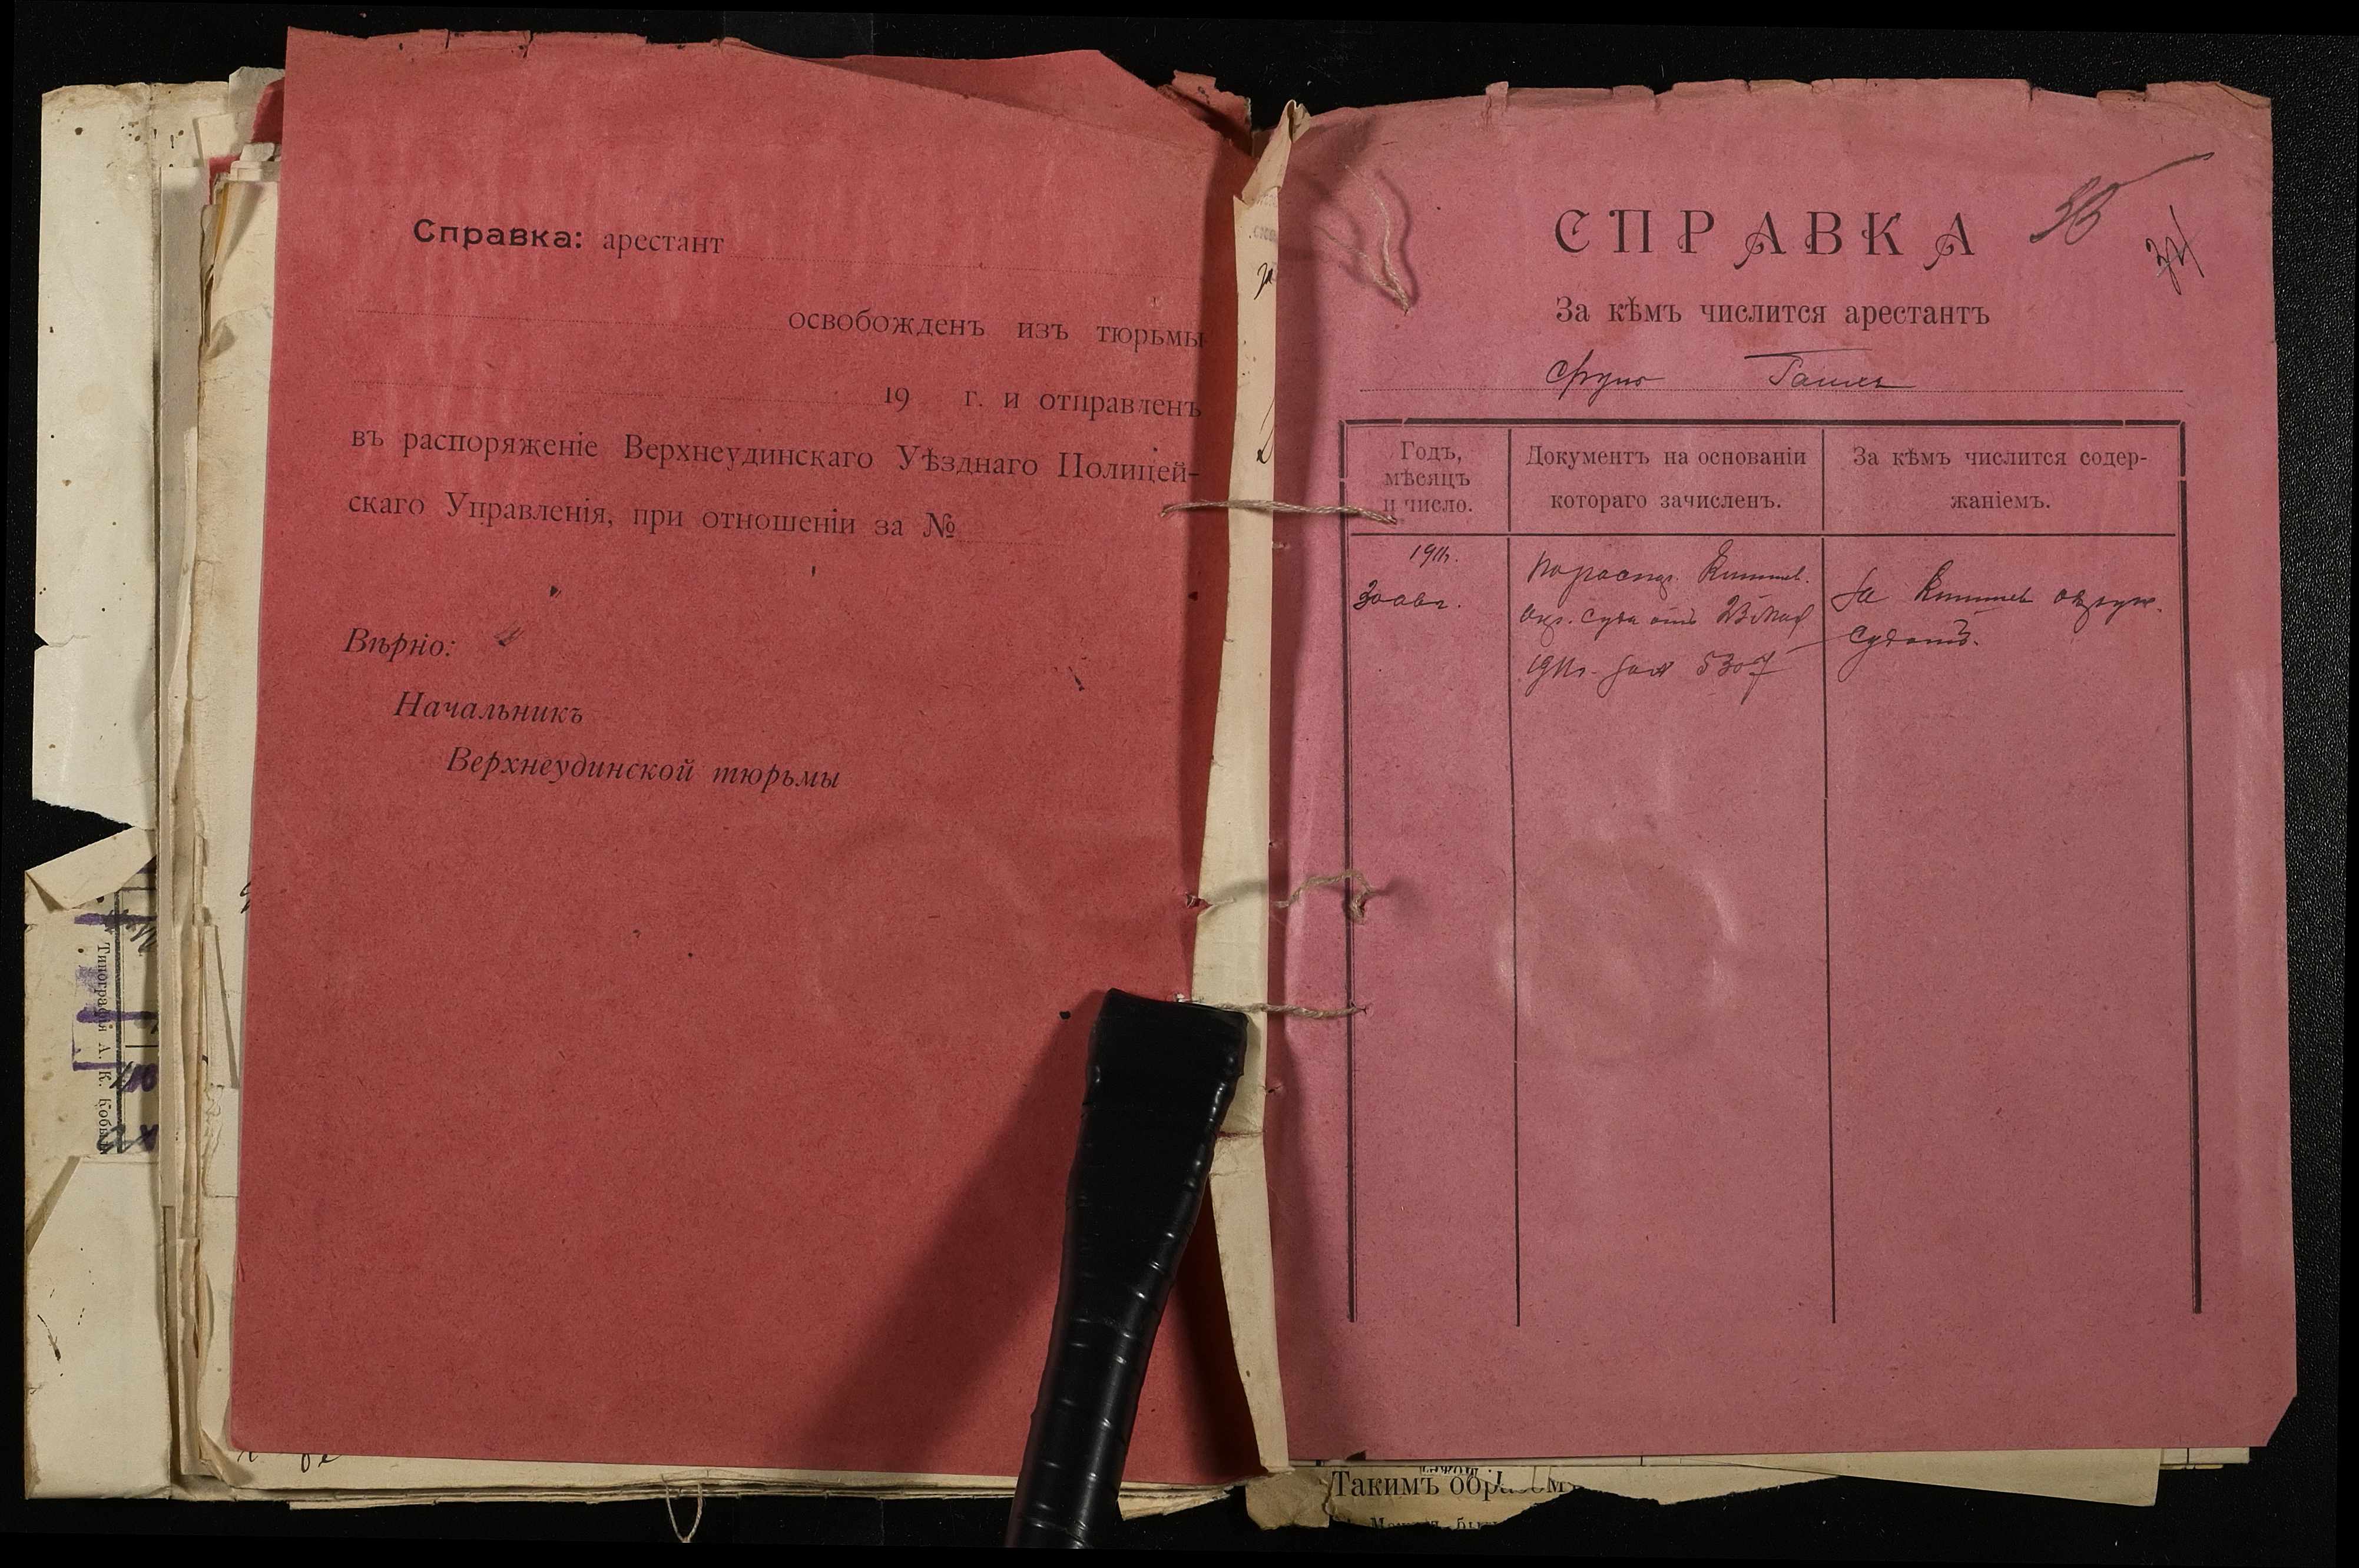 Справка: арестант
освобожденъ изъ тюрьмы
19 г. и отправленъ
въ распоряженіе Верхнеудинскаго Уѣзднаго Полицей-
скаго Управленія, при отношеніи за №
Вѣрно:
Начальникъ
Верхнеудинской тюрьмы
Типографія А. К. Кобы
СПРАВКА
За кѣмъ числится арестантъ
Годъ,
мѣсяцъ
и число.
Документъ на основаніи
котораго зачисленъ.
За кѣмъ числится содер-
жаніемъ.
30 авг.
По распор. Кишинев.
Окр. Суда отъ 23 Мая
1911 г. за № 5307
За Кишинев окруж.
Судомъ.
Такимъ образомъ